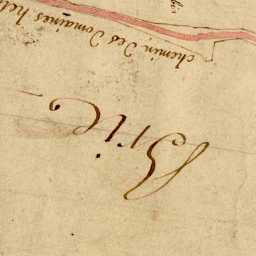 chemin des Domaines
Brie